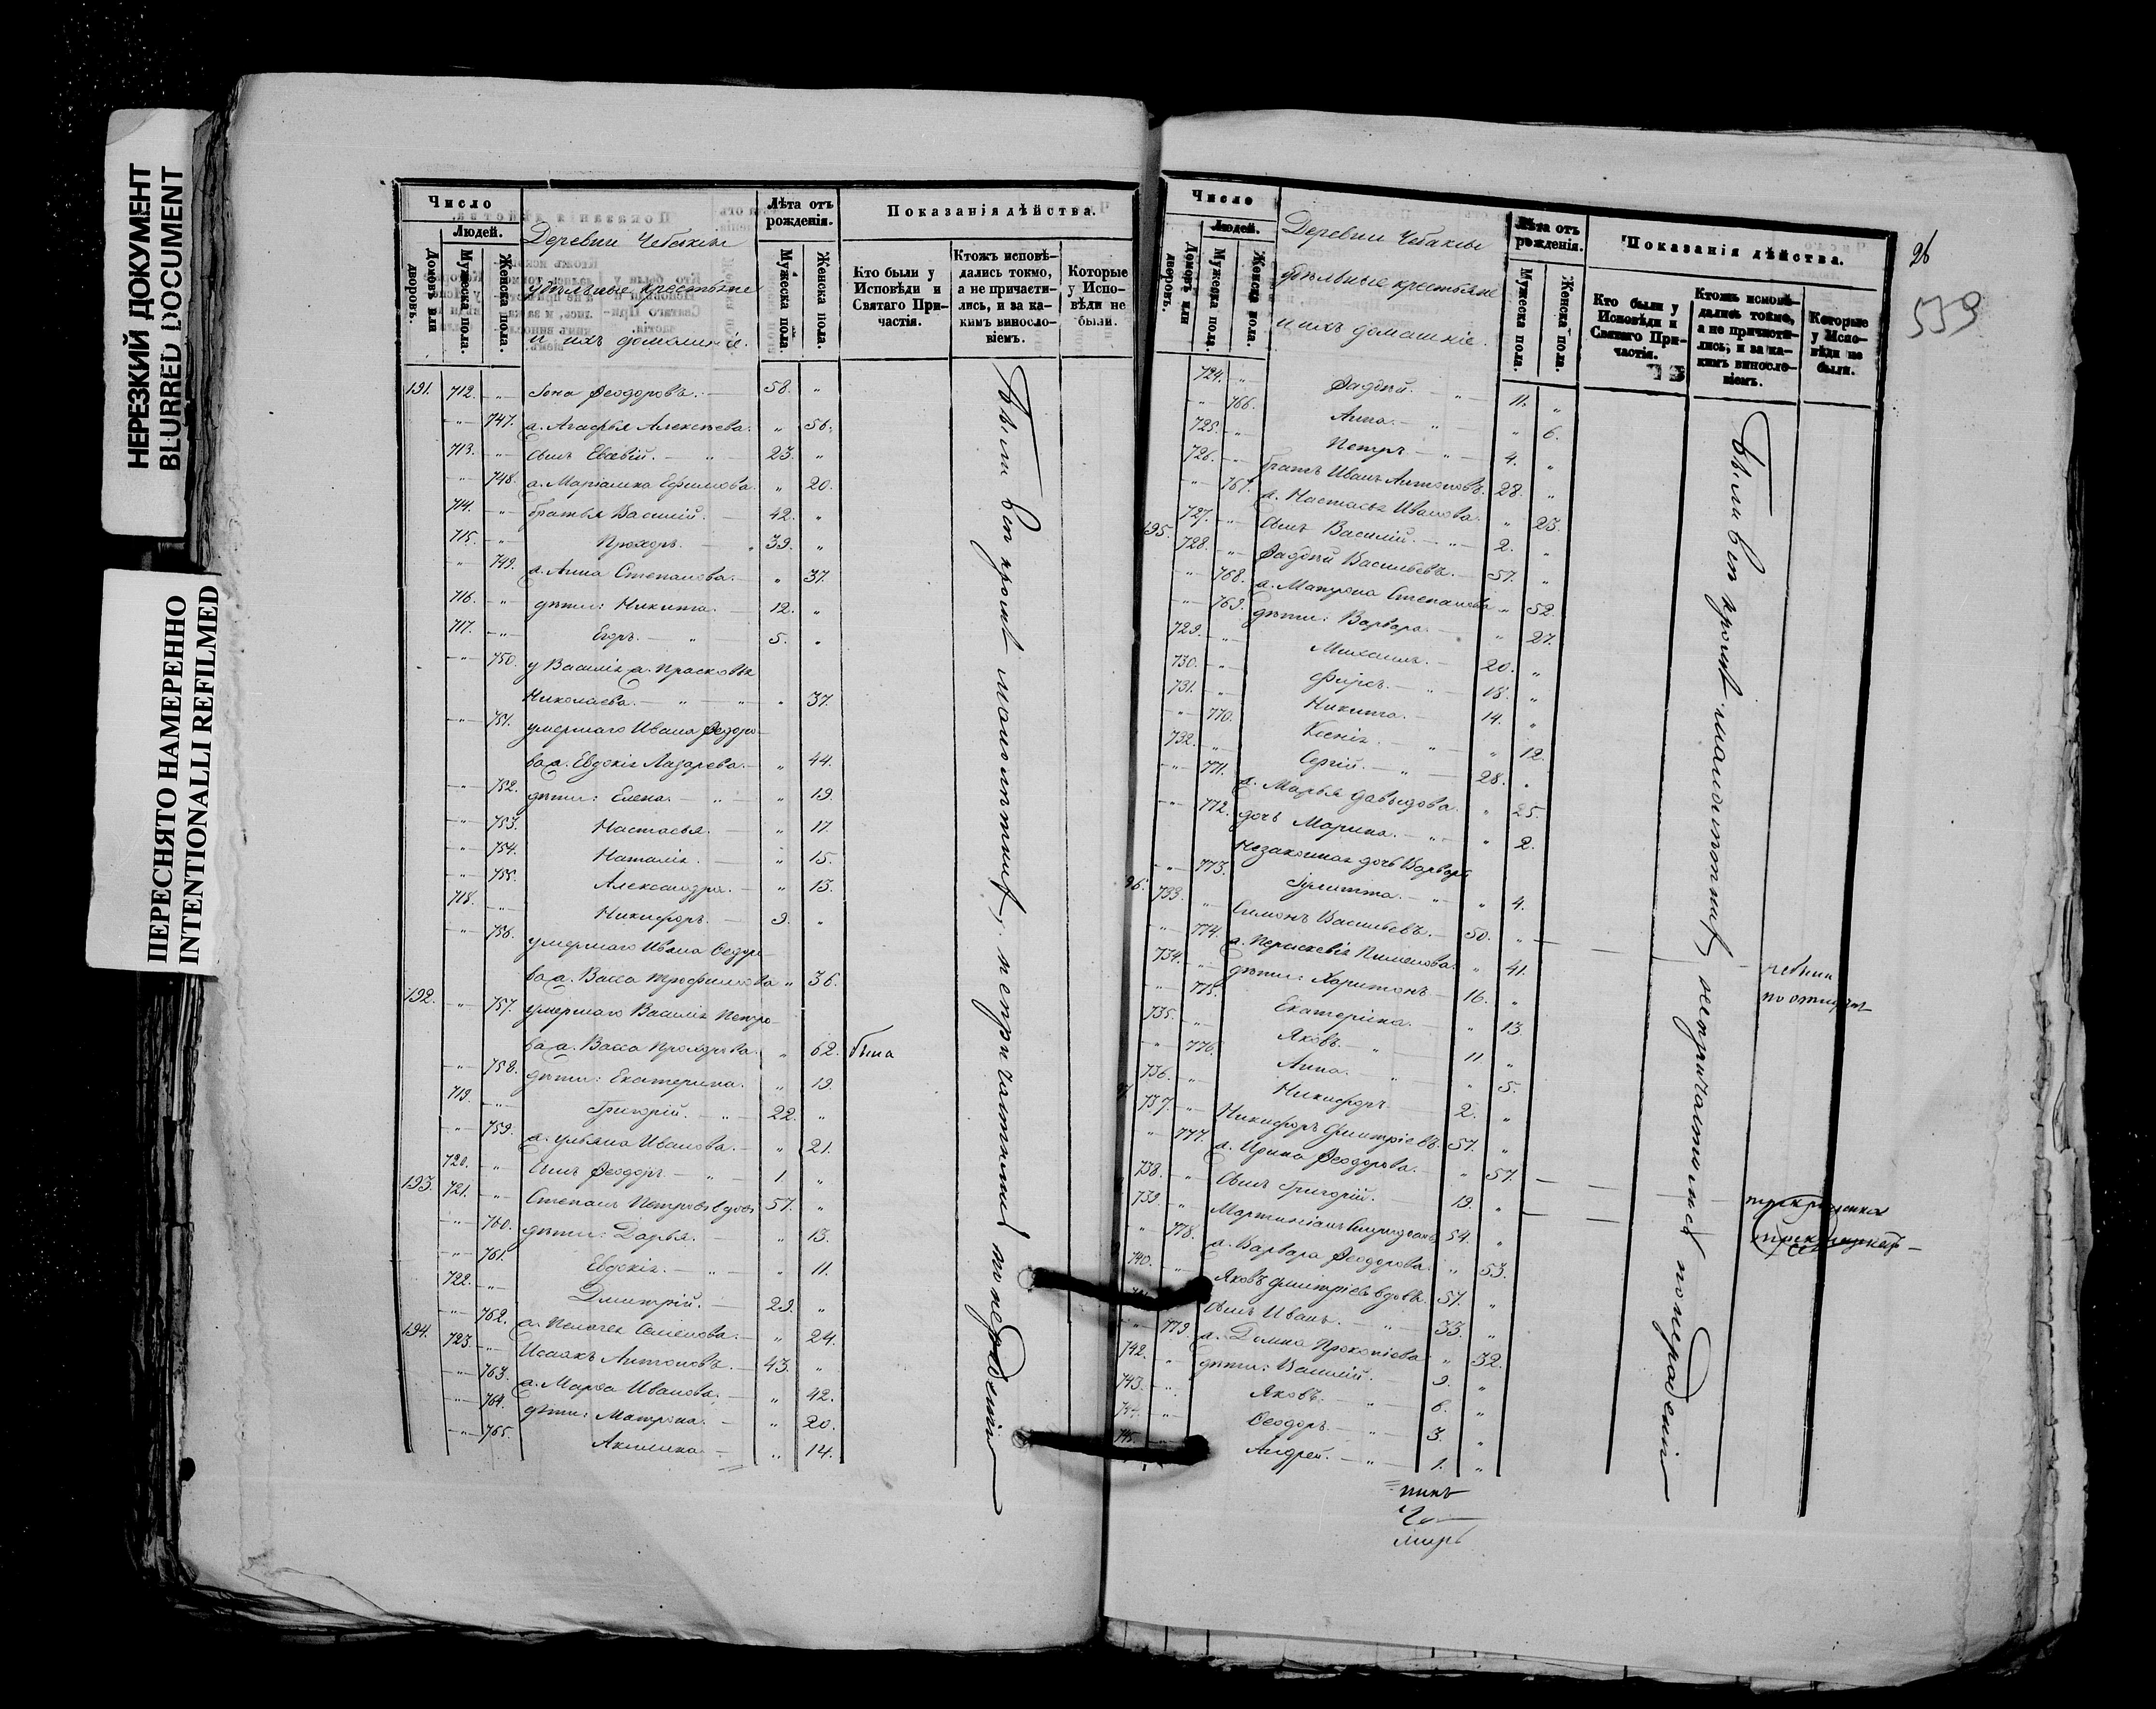 НЕРЕЗКИЙ ДОКУМЕНТ
BLURRED DOCUMENT
ПЕРЕСНЯТО НАМЕРЕННО
INTENTIONALLI REFILMED
Число
Людей.
Домовъ или дворовъ.
Мужеска пола.
Женска пола.
Деревни Чебаксы
удѣльные крестьяне
и ихъ домашніе.
Лѣта отъ рожденія.
Мужеска пола.
Женска пола.
Показанія дѣйства.
Кто были у Исповѣди и Святаго Причастія.
Ктожъ исповѣдались токмо, а не причастились, и за какимъ винословіемъ.
Которые у Исповѣди не были.
191. 712. -"- Іона Ѳеодоровъ. 58. "
-"- 747. ж. Агафья Алексѣева. " 56.
713. -"- сынъ Евсевій. 23. "
-"- 748. ж. Маріамна Ефимова. " 20.
714. -"- братья Василій. 42. "
715. -"- Прохоръ. 39. "
" 749. ж. Анна Степанова. " 37.
716. -"- дѣти: Никита. 12. "
717. -"- Егоръ. 5. "
-"- 750. у Василія ж. Прасковья
Николаева. " 37.
-"- 751. умершаго Ивана Ѳедоро-
ва ж. Евдокія Лазарева. " 44.
-"- 752. дѣти: Елена. " 19.
-"- 753. Настасья. " 17.
-"- 754. Наталія. " 15.
-"- 755. Александра. " 13.
718. -"- Никифоръ. 9. "
-"- 756. умершаго Ивана Ѳедоро-
ва ж. Васса Трофимова " 36.
192. -"- 757. умершаго Василія Петро-
ва ж. Васса Прохорова. " 62. была
-"- 758. дѣти: Екатерина. " 19.
719. -"- Григорій. 22. "
-"- 759. ж. Ульяна Иванова. " 21.
720. -"- сынъ Ѳеодоръ. 1. "
193. 721. -"- Степанъ Петровъ вдовъ 57. "
-"- 760. дѣти: Дарья. " 13.
-"- 761. Евдокія. " 11.
722. -"- Дмитрій. 29. "
-"- 762. ж. Пелагея Семенова. " 24.
194. 723. -"- Исаакъ Антоновъ. 43. "
-"- 763. ж. Марѳа Иванова. " 42.
-"- 764. дѣти: Матрона. " 20.
-"- 765. Акилина. " 14.
Были вси кромѣ малолѣтнихъ, и непричастились по нерадѣнію
26
539
Число
Людей.
Домовъ или дворовъ.
Мужеска пола.
Женска пола.
Деревни Чебаксы
удѣльные крестьяне
и ихъ домашніе.
Лѣта отъ рожденія.
Мужеска пола.
Женска пола.
Показанія дѣйства.
Кто были у Исповѣди и Святаго Причастія.
Ктожъ исповѣдались токмо, а не причастились, и за какимъ винословіемъ.
Которые у Исповѣди не были.
724. -"- Ѳаддей. 11. "
-"- 766. Анна. " 6.
725. -"- Петръ. 4. "
726. -"- братъ Иванъ Антоновъ. 28. "
-"- 767. ж. Настасья Иванова. " 23.
727. -"- сынъ Василій. 2. "
195. 728. -"- Ѳаддей Васильевъ. 57. "
" 768. ж. Матрона Степанова " 52.
-"- 769. дѣти: Варвара. " 27.
729. -"- Михаилъ. 20. "
730. -"- Фирсъ. 18. "
731. -"- Никита. 14. "
-"- 770. Ксенія. " 12.
732. -"- Сергій. 28. "
-"- 771. ж. Марья Давыдова. " 25.
-"- 772. дочь Марина. " 2.
Незаконная дочь Варвары
-"- 773. Іулитта. " 4.
96. 733. " Симонъ Васильевъ. 50. "
" 774. ж. Параскевія Пименова. " 41.
734. -"- дѣти: Харитонъ 16. "
" 775. Екатерина. " 13.
735. -"- Яковъ. 11. "
" 776. Анна. " 5.
736. -"- Никифоръ. 2. "
737. -"- Никифоръ Дмитріевъ. 57. "
" 777. ж. Ирина Ѳеодорова. " 57.
738. " сынъ Григорій. 19. "
739. " Мартиніанъ 54. "
" 778. ж. Варвара Ѳеодорова. " 53.
740. " Яковъ Дмитріевъ вдовъ. 57. "
сынъ Иванъ. 33. "
" 779. ж. Домна Прокопіева " 32.
742. " дѣти: Василій. 9. "
743. -"- Яковъ. 6. "
" Ѳеодоръ. 3. "
745. Андрей. 1. "
Были вси кромѣ малолѣтнихъ, непричастились по нерадѣнію